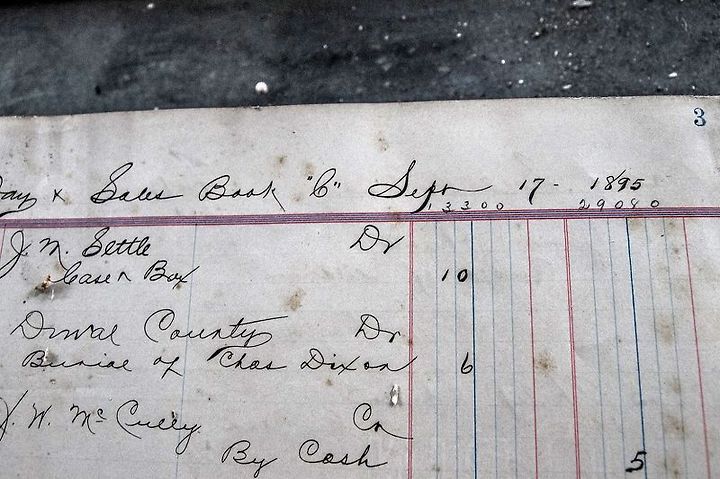 3
Day & Sales Book "C" Sept 17 - 1895
13300 29080
J. N. Settle Dr
Case & Box 10
Duval County Dr
Burial of Chas Dixon 6
J. W. McCully Cr
By Cash 5